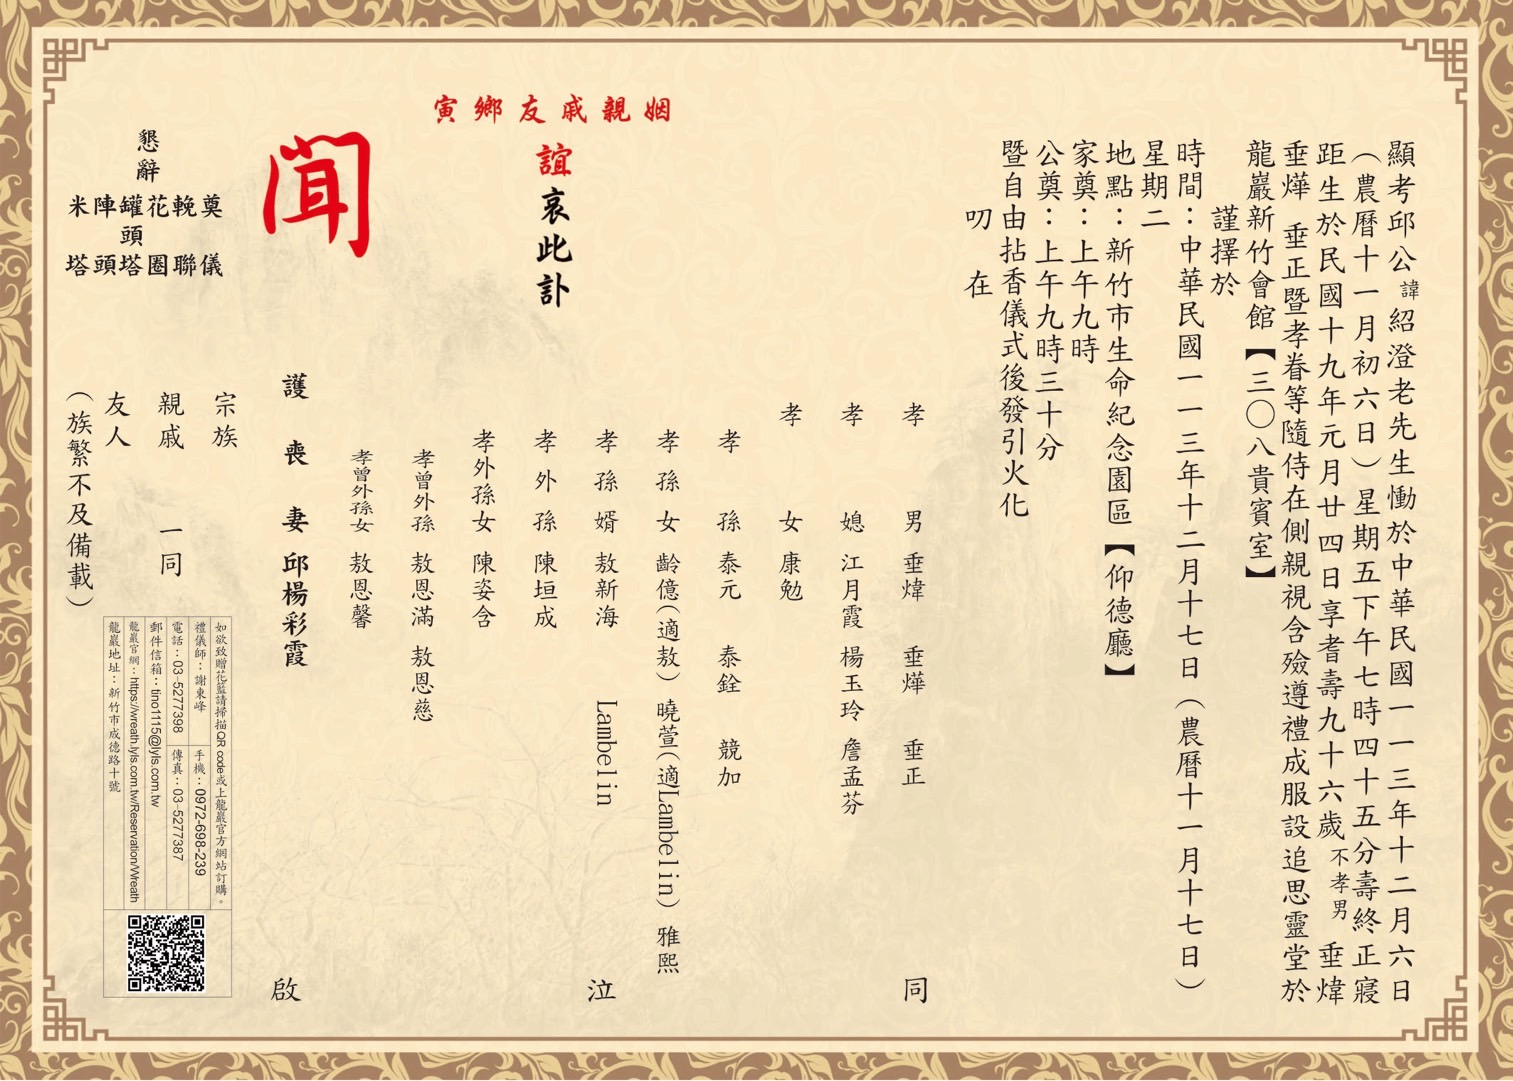 顯考邱公諱紹澄老先生慟於中華民國一一三年十二月六日
（農曆十一月初六日）星期五下午七時四十五分壽終正寢
距生於民國十九年元月廿四日享耆壽九十六歲不孝男 垂煒
垂燁 垂正暨孝眷等隨侍在側親視含殮遵禮成服設追思靈堂於
龍巖新竹會館【三〇八貴賓室】
謹擇於
時間：中華民國一一三年十二月十七日（農曆十一月十七日）
星期二
地點：新竹市生命紀念園區【仰德廳】
家奠：上午九時
公奠：上午九時三十分
暨自由拈香儀式後發引火化
叨 在
姻親戚友鄉寅
誼哀此訃
聞
孝男 垂煒 垂燁 垂正 同
孝媳 江月霞 楊玉玲 詹孟芬
孝女 康勉
孝孫 泰元 泰銓 競加
孝孫女 齡億(適敖) 曉萱(適Lambelin) 雅熙
孝孫婿 敖新海 Lambelin 泣
孝外孫 陳垣成
孝外孫女 陳姿含
孝曾外孫 敖恩滿 敖恩慈
孝曾外孫女 敖恩馨
護喪妻 邱楊彩霞 啟
懇辭
奠輓花罐陣米
頭
儀聯圈塔頭塔
宗族
親戚 一同
友人
（族繁不及備載）
如欲致贈花籃請掃描QR code或上龍巖官方網站訂購。
禮儀師：謝東峰 手機：0972-698-239
電話：03-5277398 傳真：03-5277387
郵件信箱：tino1115@lyls.com.tw
龍巖官網：https://wreath.lyls.com.tw/Reservation/Wreath
龍巖地址：新竹市成德路十號